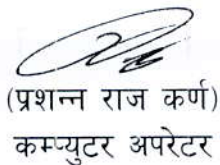 (प्रशन्न राज कर्ण)
कम्प्युटर अपरेटर